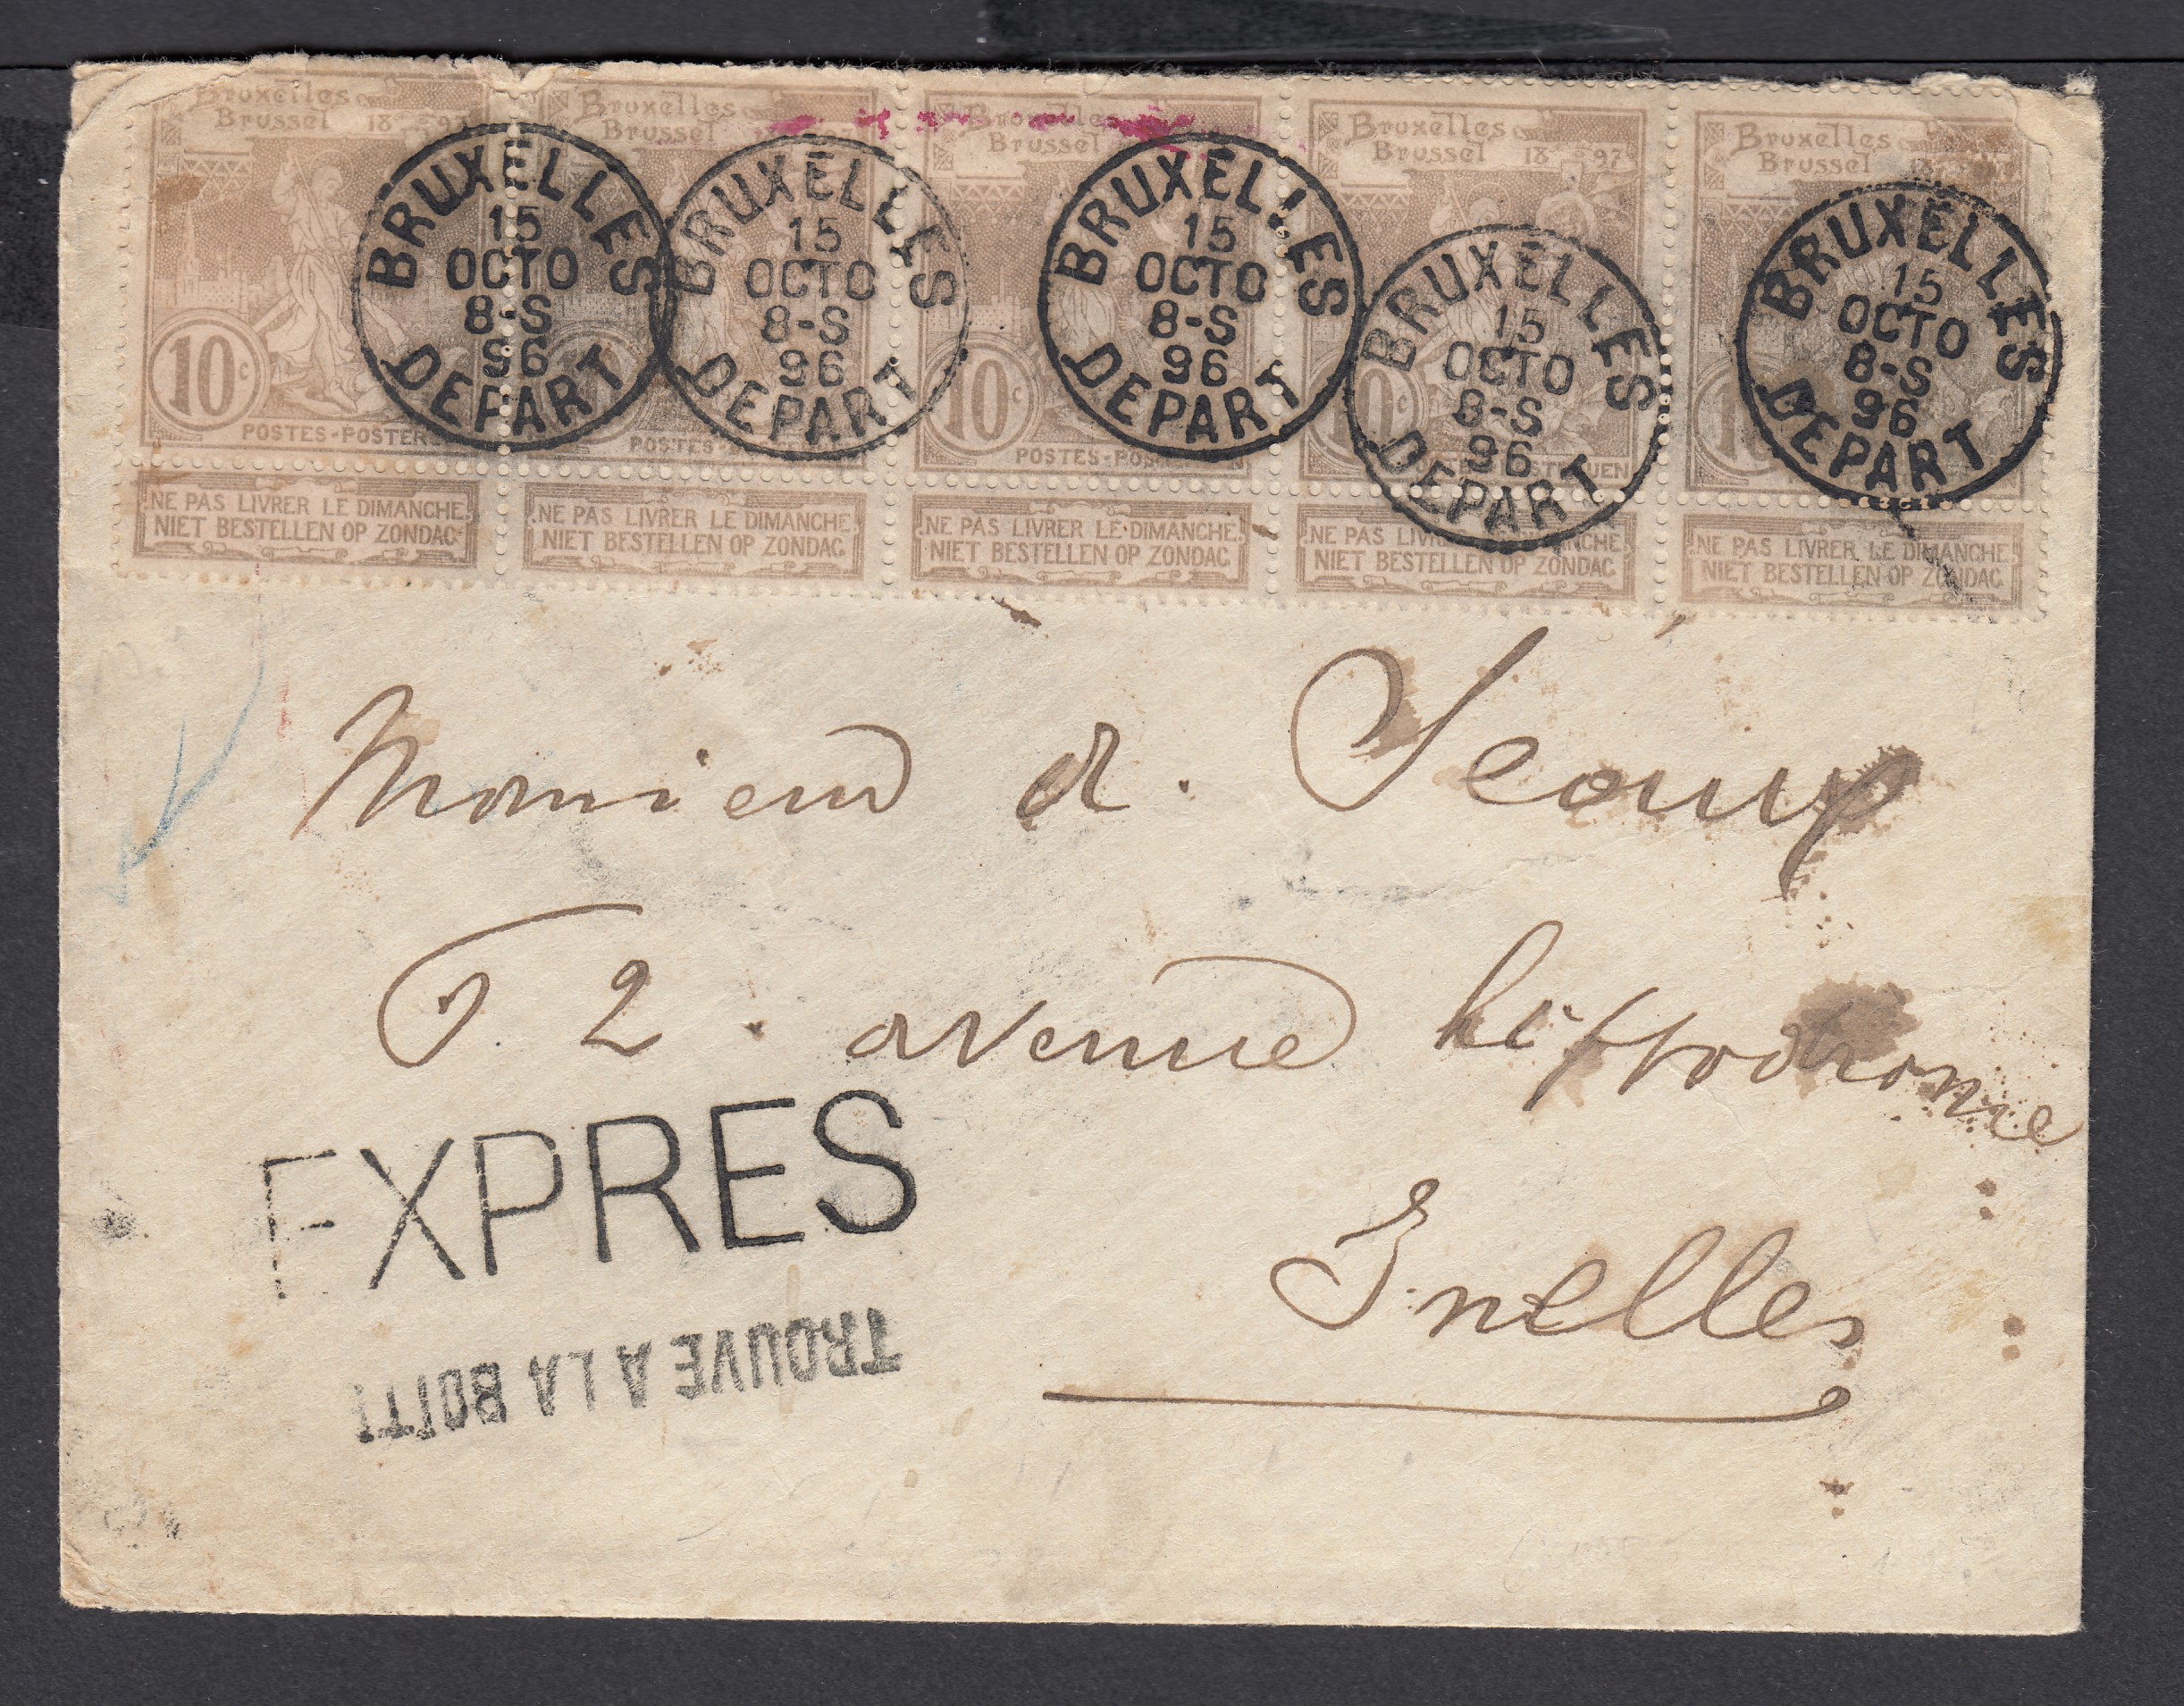 Bruxelles Bruxelles Bruxelles Bruxelles Bruxelles
Brussel 1897 Brussel Brussel Brussel 1897 Brussel
BRUXELLES BRUXELLES BRUXELLES BRUXELLES BRUXELLES
15 15 15 15 15
OCTO OCTO OCTO OCTO OCTO
8-S 8-S 8-S 8-S 8-S
96 96 96 96 96
DEPART DEPART DEPART DEPART DEPART
10c 10 10c 10c 10
POSTES-POSTER POSTES- POSTES-POS
NE PAS LIVRER LE DIMANCHE NE PAS LIVRER LE DIMANCHE NE PAS LIVRER LE DIMANCHE NE PAS LIVRER LE DIMANCHE NE PAS LIVRER LE DIMANCHE
NIET BESTELLEN OP ZONDAG NIET BESTELLEN OP ZONDAG NIET BESTELLEN OP ZONDAG NIET BESTELLEN OP ZONDAG NIET BESTELLEN OP ZONDAG
Monsieur
2. avenue hippodrome
EXPRES
Ixelles
TROUVE A LA BOITE